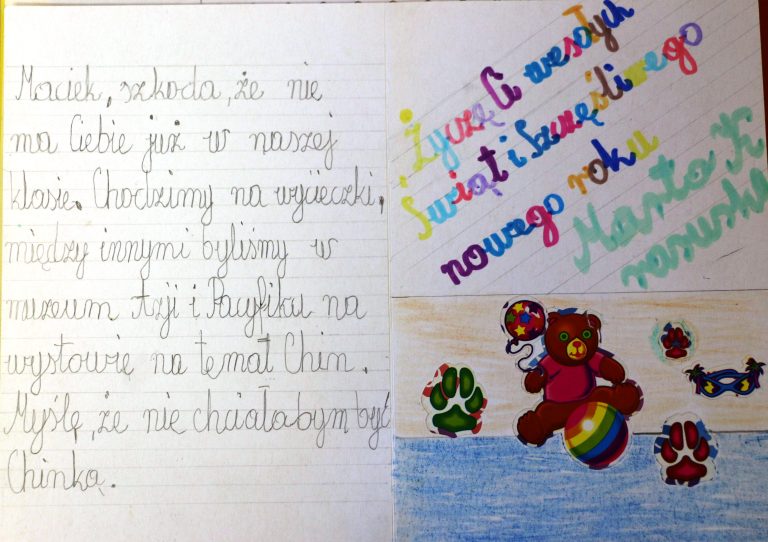 Maciek, szkoda, że nie
ma Ciebie już w naszej
klasie. Chodzimy na wycieczki,
między innymi byliśmy w
muzeum Azji i Pacyfiku na
wystowię na temat Chin.
Myślę, że nie chciałabym być
Chinką.
Życzę Ci wesołych
Świąt i Szczęśliwego
nowego roku